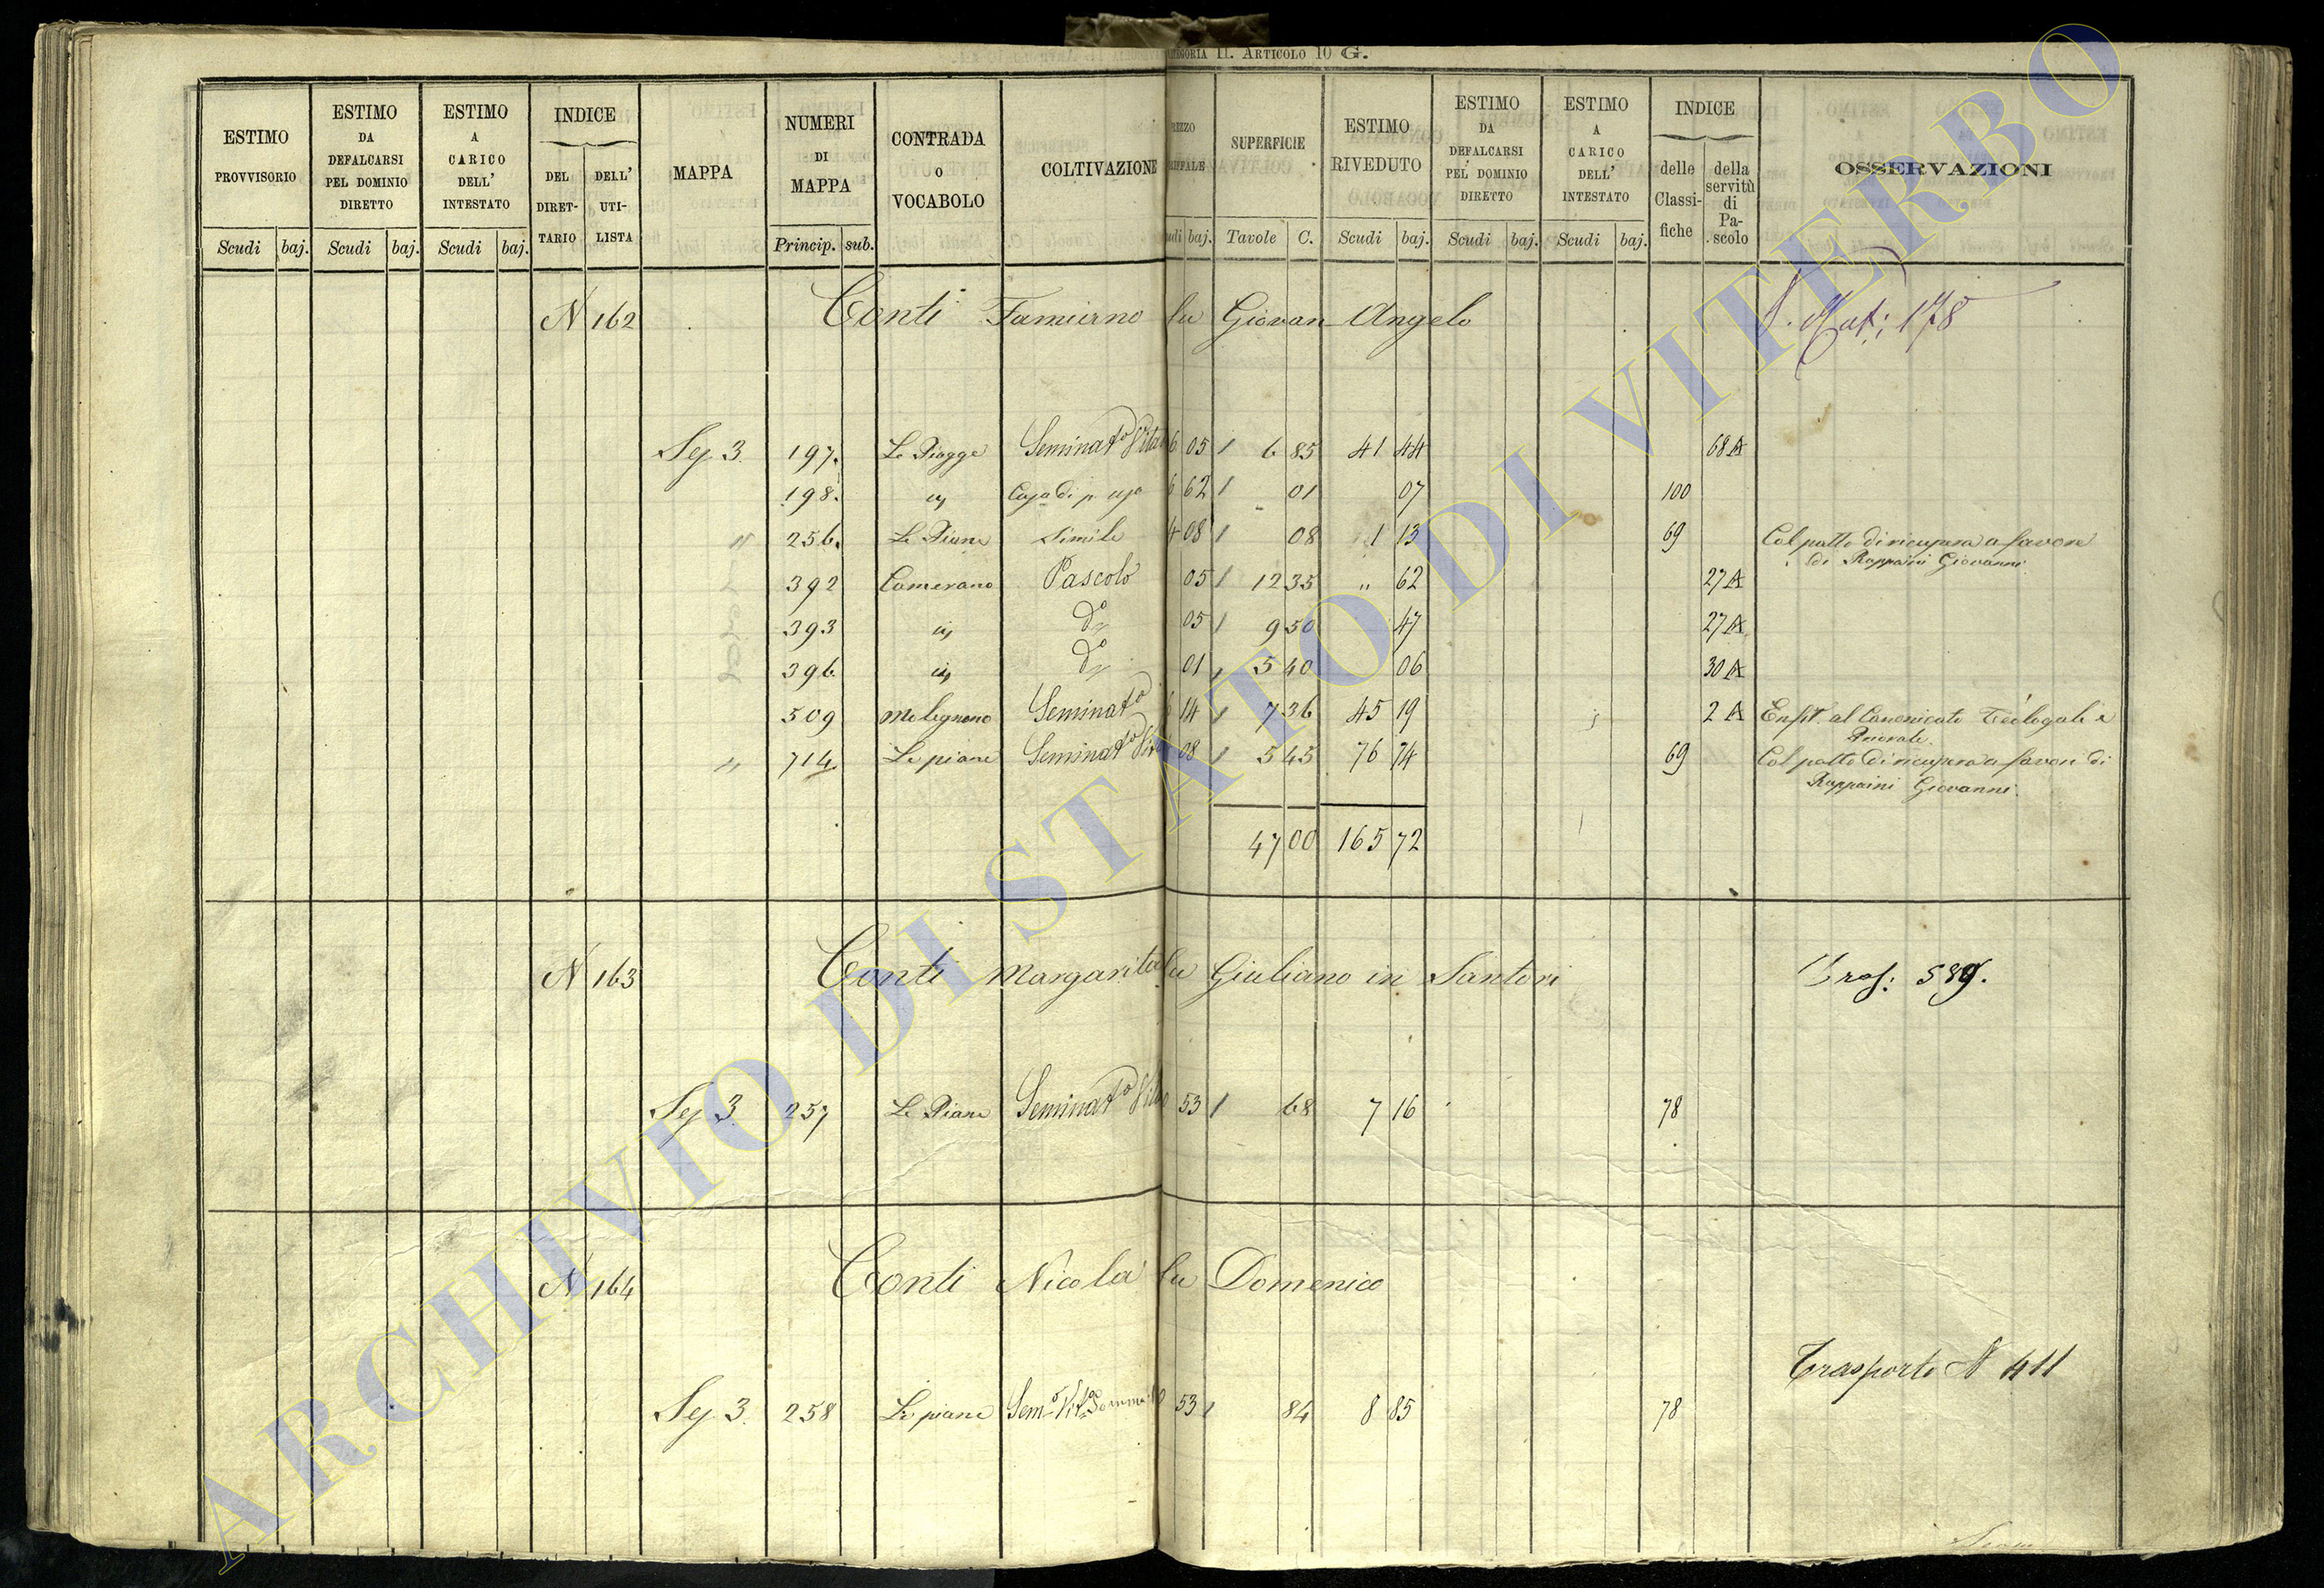 CATEGORIA II. ARTICOLO 10 G.
ESTIMO PROVVISORIO Scudi baj.
ESTIMO DA DEFALCARSI PEL DOMINIO DIRETTO Scudi baj.
ESTIMO A CARICO DELL' INTESTATO Scudi baj.
INDICE DEL DIRET-TARIO DELL' UTI-LISTA
MAPPA
NUMERI DI MAPPA Princip. sub.
CONTRADA O VOCABOLO
COLTIVAZIONE
SUPERFICIE Tavole C.
ESTIMO RIVEDUTO Scudi baj.
ESTIMO DA DEFALCARSI PEL DOMINIO DIRETTO Scudi baj.
ESTIMO A CARICO DELL' INTESTATO Scudi baj.
INDICE delle Classi-fiche della servitù di Pa-scolo
OSSERVAZIONI
N 162 Conti fu Giovan Angelo 178
Sez. 3. 197. Le Piagge Seminato Vitato 6 05 6 85 41 44 68 A
198. Casa di p. uso 6 62 01 07 100
" 256. Le Piane Simile 4 08 08 1 13 69 Col patto di ricupera a favore
di Rappaini Giovanni
392 Camerano Pascolo 05 12 35 " 62 27 A
393 do 05 9 50 47 27 A
396. do 01 5 40 06 30 A
509 Melognano Seminato 6 14 7 36 45 19 2 A Enfit. al Canonicato Teologale e
" 714. Le piane Seminato Vito 08 5 45 76 74 69 Col patto di ricupera a favore di
Rappaini Giovanni.
47 00 165 72
N 163 Conti Margarita fu Giuliano in Santori Tras: 589.
Sez. 3. 257 Le Piane Seminato Vito 53 68 7 16 78
N 164 Conti Nicola fu Domenico
Trasporto N 411
Sez. 3. 258 Le piane 53 84 8 85 78
ARCHIVIO DI STATO DI VITERBO